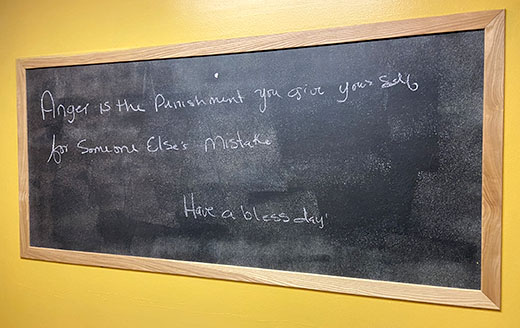 Anger is the Punishment you give your self
for Someone Else's Mistake
Have a bless day!